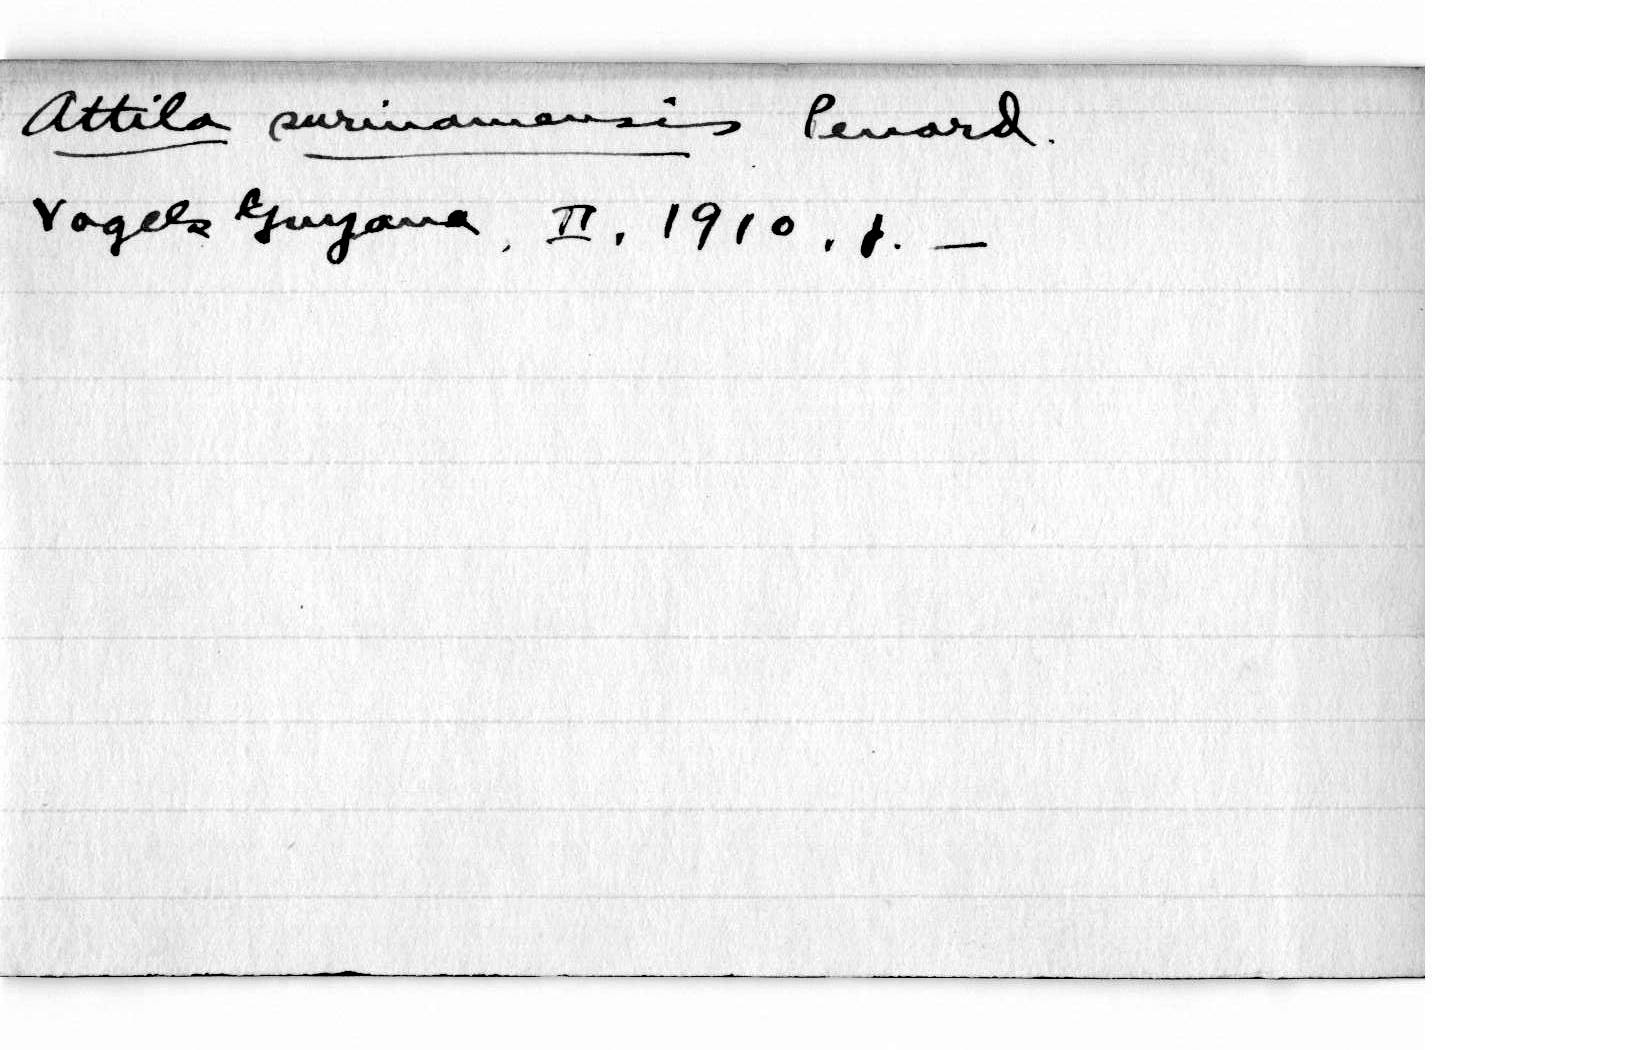 Attila surinamensis Penard.
Vogels Guyana, II, 1910, p. —